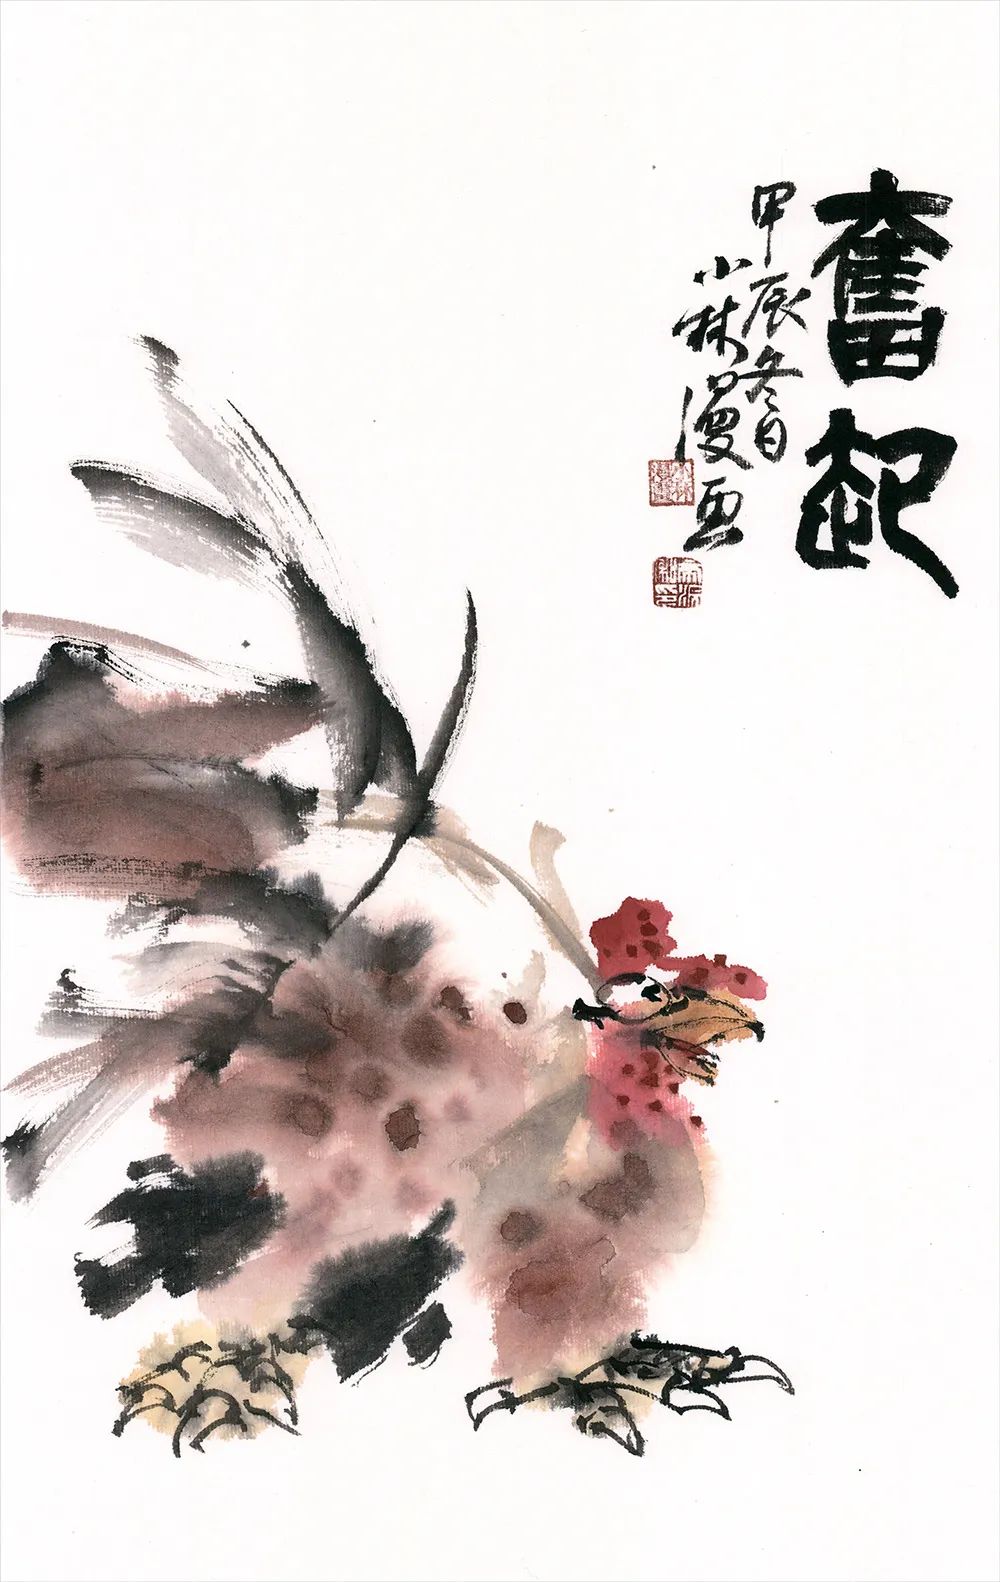 奮起
甲辰冬日
小林漫画